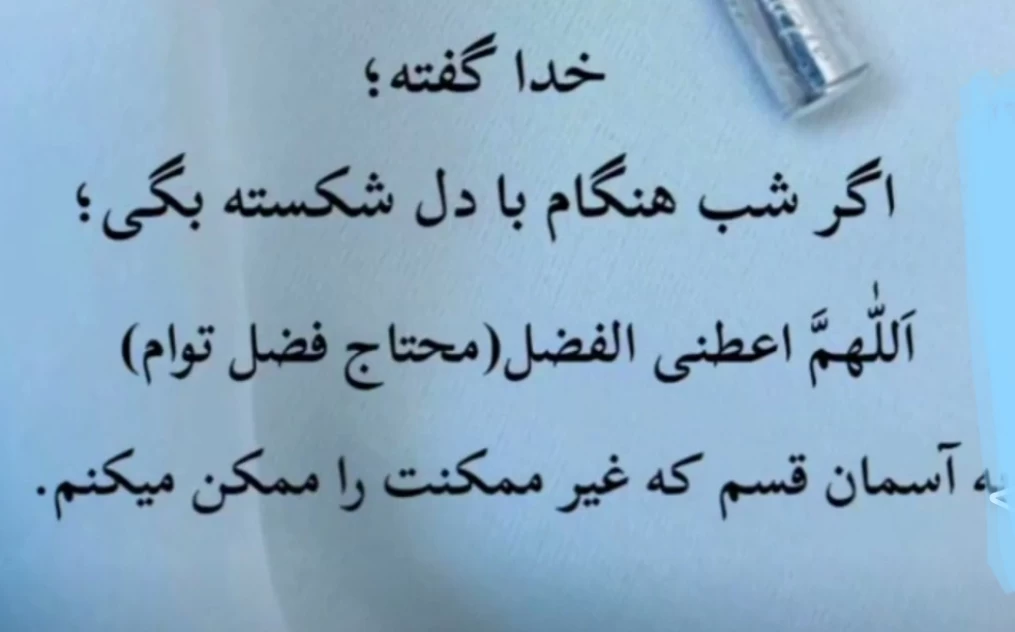 خدا گفته؛
اگر شب هنگام با دل شکسته بگی؛
اَللّٰهمَّ اعطنی الفضل(محتاج فضل توام)
به آسمان قسم که غیر ممکنت را ممکن میکنم.